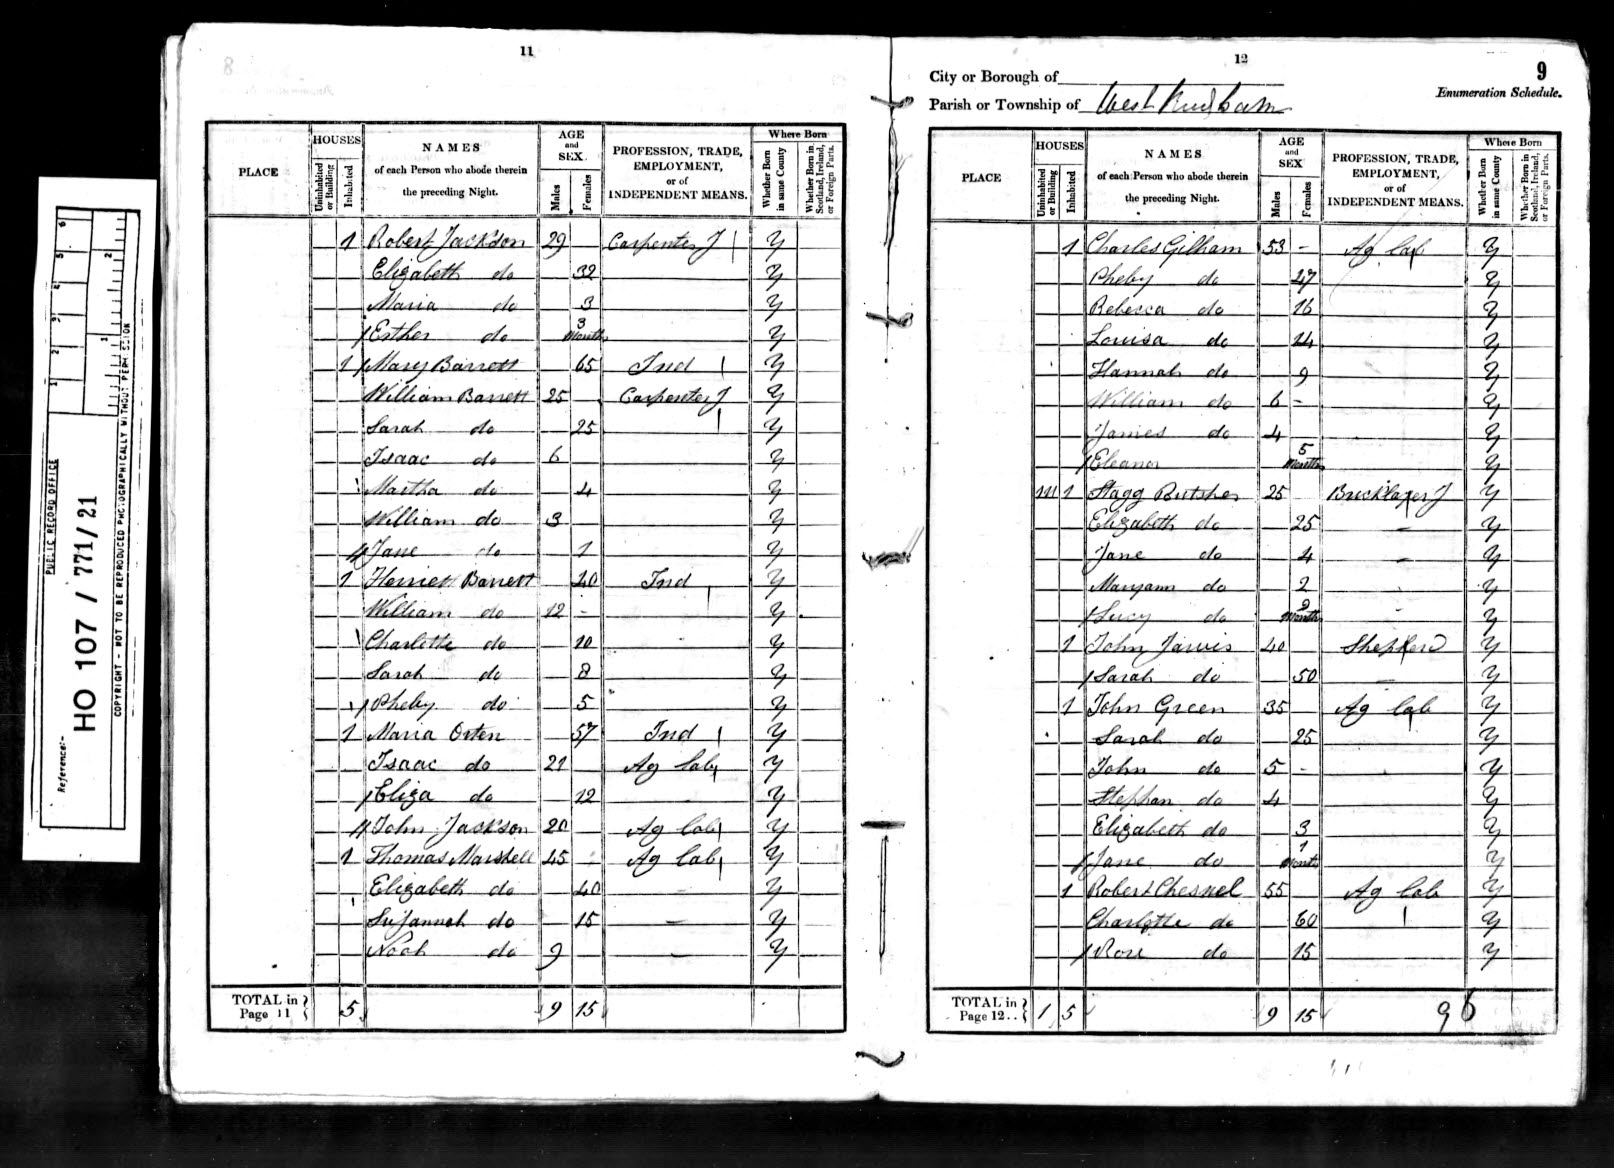 11
PLACE
HOUSES
Uninhabited or Building
Inhabited
NAMES
of each Person who abode therein
the preceding Night.
AGE
and
SEX
Males
Females
PROFESSION, TRADE,
EMPLOYMENT,
or of
INDEPENDENT MEANS.
Where Born
Whether Born in same County
Whether Born in Scotland, Ireland, or Foreign Parts.
1 Robert Jackson 29 Carpenter J Y
Elizabeth do 32 Y
Maria do 3 Y
Esther do 3 Months Y
1 Mary Barrett 65 Ind Y
William Barrett 25 Carpenter J Y
Sarah do 25 Y
Isaac do 6 Y
Martha do 4 Y
William do 3 Y
Jane do 1 Y
1 Harriett Barrett 40 Ind Y
William do 12 - Y
Charlotte do 10 Y
Sarah do 8 Y
Pheby do 5 Y
1 Maria Orten 57 Ind Y
Isaac do 21 Ag lab Y
Eliza do 12 Y
John Jackson 20 Ag lab Y
1 Thomas Marshell 45 Ag lab Y
Elizabeth do 40 Y
Susannah do 15 Y
Noah do 9 Y
TOTAL in Page 11 5 9 15
12
9
City or Borough of
Enumeration Schedule.
Parish or Township of West
PLACE
HOUSES
Uninhabited or Building
Inhabited
NAMES
of each Person who abode therein
the preceding Night.
AGE
and
SEX
Males
Females
PROFESSION, TRADE,
EMPLOYMENT,
or of
INDEPENDENT MEANS.
Where Born
Whether Born in same County
Whether Born in Scotland, Ireland, or Foreign Parts.
1 Charles Gilham 53 - Ag lab Y
Pheby do 47 Y
Rebecca do 16 Y
Louisa do 14 Y
Hannah do 9 Y
William do 6 - Y
James do 4 Y
Eleanor 5 Months Y
1U 1 Stagg Butcher 25 Bricklayer J Y
Elizabeth do 25 Y
Jane do 4 Y
Maryann do 2 Y
Lucy do 2 Months Y
1 John Jarvis 40 Shepherd Y
Sarah do 50 Y
1 John Green 35 Ag lab Y
Sarah do 25 Y
John do 5 - Y
Stephan do 4 Y
Elizabeth do 3 Y
Jane do 1 Month Y
1 Robert Chesnel 55 Ag lab Y
Charlotte do 60 Y
Rose do 15 Y
TOTAL in Page 12.. 1 5 9 15 96
PUBLIC RECORD OFFICE
Reference:-
HO 107 / 771/21
COPYRIGHT - NOT TO BE REPRODUCED PHOTOGRAPHICALLY WITHOUT PERMISSION